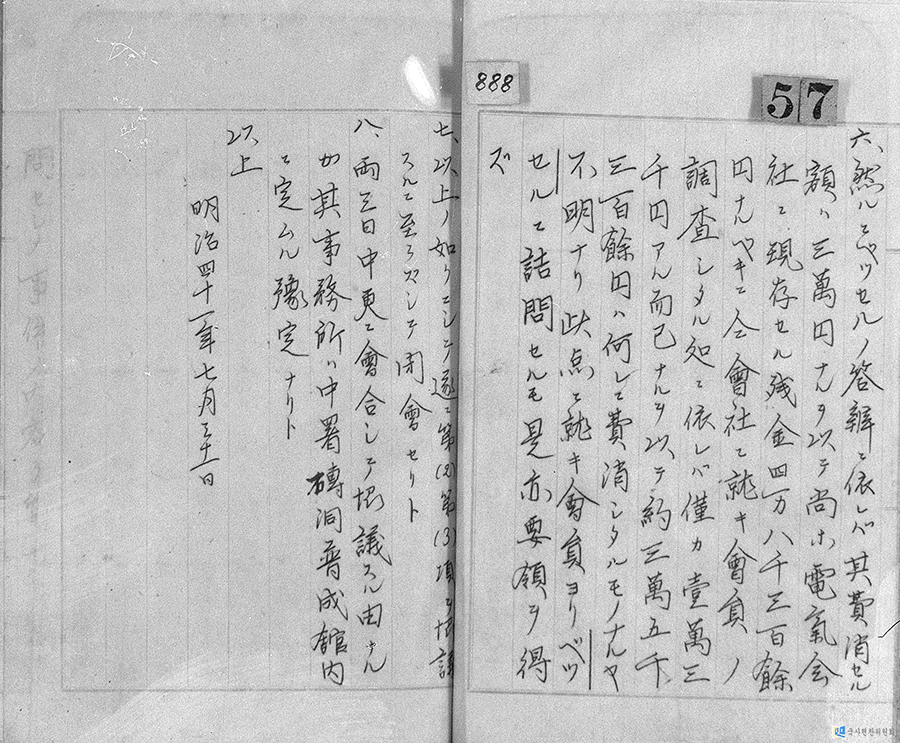 888
57
六、然ルニベツセルノ答辯ニ依レバ其費消セル
額ハ三萬円ナルヲ以テ尚ホ電氣会
社ニ現存セル残金四万八千三百餘
円ナルベキニ仝會社ニ就キ會員ノ
調査シタル処ニ依レバ僅カ壹萬三
千円アル而已ナルヲ以テ約三萬五千
三百餘円ハ何レニ費消シタルモノナルヤ
不明ナリ此点ニ就キ會員ヨリベツ
セルニ詰問セルモ是亦要領ヲ得
ズ
七、以上ノ如クニシテ遂ニ第(2)第(3)項ヲ協議
スルニ至ラズシテ閉會セリト
八、両三日中更ニ會合シテ協議スル由ナル
カ其事務所ハ中署磚洞普成館内
ニ定ムル豫定ナリト
以上
明治四十一年七月三十一日
국사편찬위원회